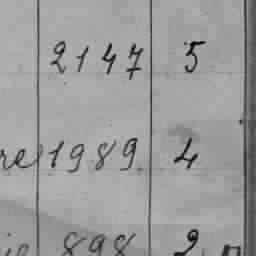 2147 5
re 1989 4
898 2